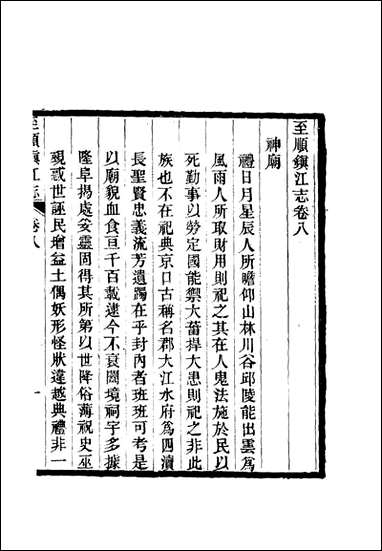 至順鎮江志卷八
神廟
禮日月星辰人所瞻仰山林川谷邱陵能出雲爲
風雨人所取財用則祀之其在人鬼法施於民以
死勤事以勞定國能禦大菑捍大患則祀之非此
族也不在祀典京口古稱名郡大江水府爲四瀆
長聖賢忠義流芳遺躅在乎封內者班班可考是
以廟貌血食亘千百載逮今不衰闔境祠宇多據
隆阜揚處妥靈固得其所第以世降俗薄祝史巫
覡惑世誣民增益土偶妖形怪狀違越典禮非一
至順鎮江志
卷八
一